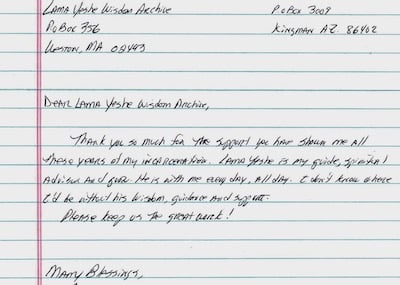 Lama Yeshe Wisdom Archive P.O Box 3009
PO Box 356 Kingman AZ. 86402
Weston, MA 02493
Dear Lama Yeshe Wisdom Archive,
Thank you so much for the support you have shown me all
these years of my incarceration. Lama Yeshe is my guide, spiritual
advisor and guru. He is with me every day, all day. I don't know where
I'd be without his wisdom, guidance and support.
Please keep up the great work!
Many Blessings,